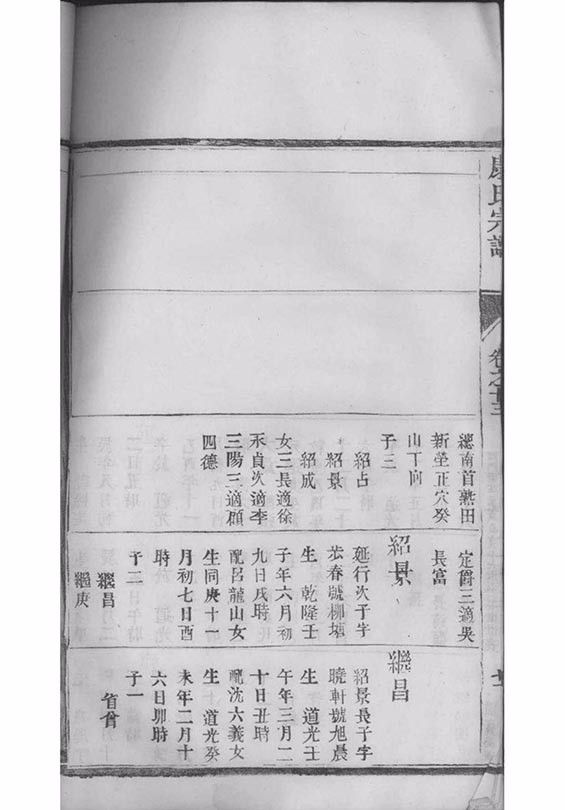 氏宗譜
卷之十三
總南首熟田
新塋正穴癸
山丁向
子三
紹占
紹景
紹成
女三長適徐
永貞次適李
三陽三適顧
四德
定爵三適吳
長富
紹景
延行次子字
恭春號柳塘
生 乾隆壬
子年六月初
九日戌時
配呂龍山女
生同庚十一
月初七日酉
時
子二
繼昌
繼庚
繼昌
紹景長子字
曉軒號旭晨
生 道光壬
午年三月二
十日丑時
配沈六義女
生 道光癸
未年二月十
六日卯時
子一